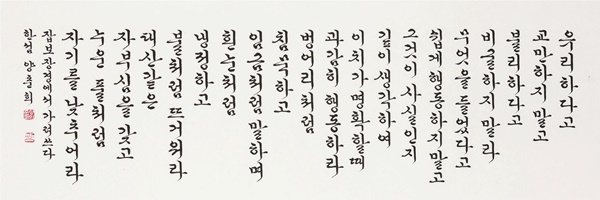 유리하다고
교만하지 말고
불리하다고
비굴하지 말라
무엇을 들었다고
쉽게 행동하지 말고
그것이 사실인지
깊이 생각하여
이치가 명확할 때
과감히 행동하라
벙어리처럼
침묵하고
임금처럼 말하며
흰눈처럼
냉정하고
불처럼 뜨거워라
태산같은
자부심을 갖고
누운 풀처럼
자기를 낮추어라
잡보장경에서 가려쓰다